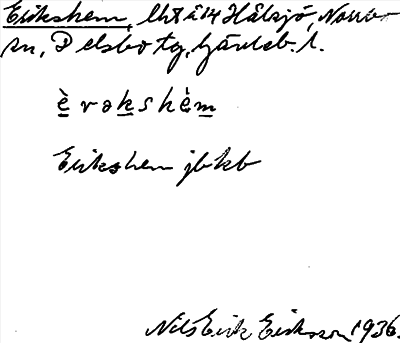 Erikshem, lht å 14 Hålsjö, Norrbo
sn, Delsbo tg, Gävleb. l.
è rəkshèm
Erikshem jbkb
Nils Erik Eriksson 1936.